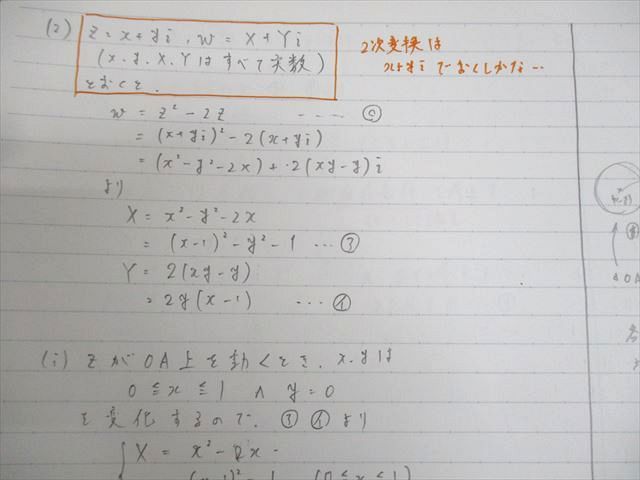 (2) z = x + yi , w = X + Yi
(x, y, X, Y は すべて 実数)
とおくと.
2次変換は
x+yi でおくしかない…
w = z² - 2z ……⓪
= (x+yi)² - 2(x+yi)
= (x² - y² - 2x) + 2(xy - y)i
より
X = x² - y² - 2x
= (x-1)² - y² - 1 …㋐
Y = 2(xy - y)
= 2y(x-1) …㋑
(i) z が OA 上を動くとき. x, y は
0 ≦ x ≦ 1 ∧ y = 0
を変化するので. ㋐ ㋑ より
X = x² - 2x
(x-1)² - 1 (0 ≦ x ≦ 1)
OA